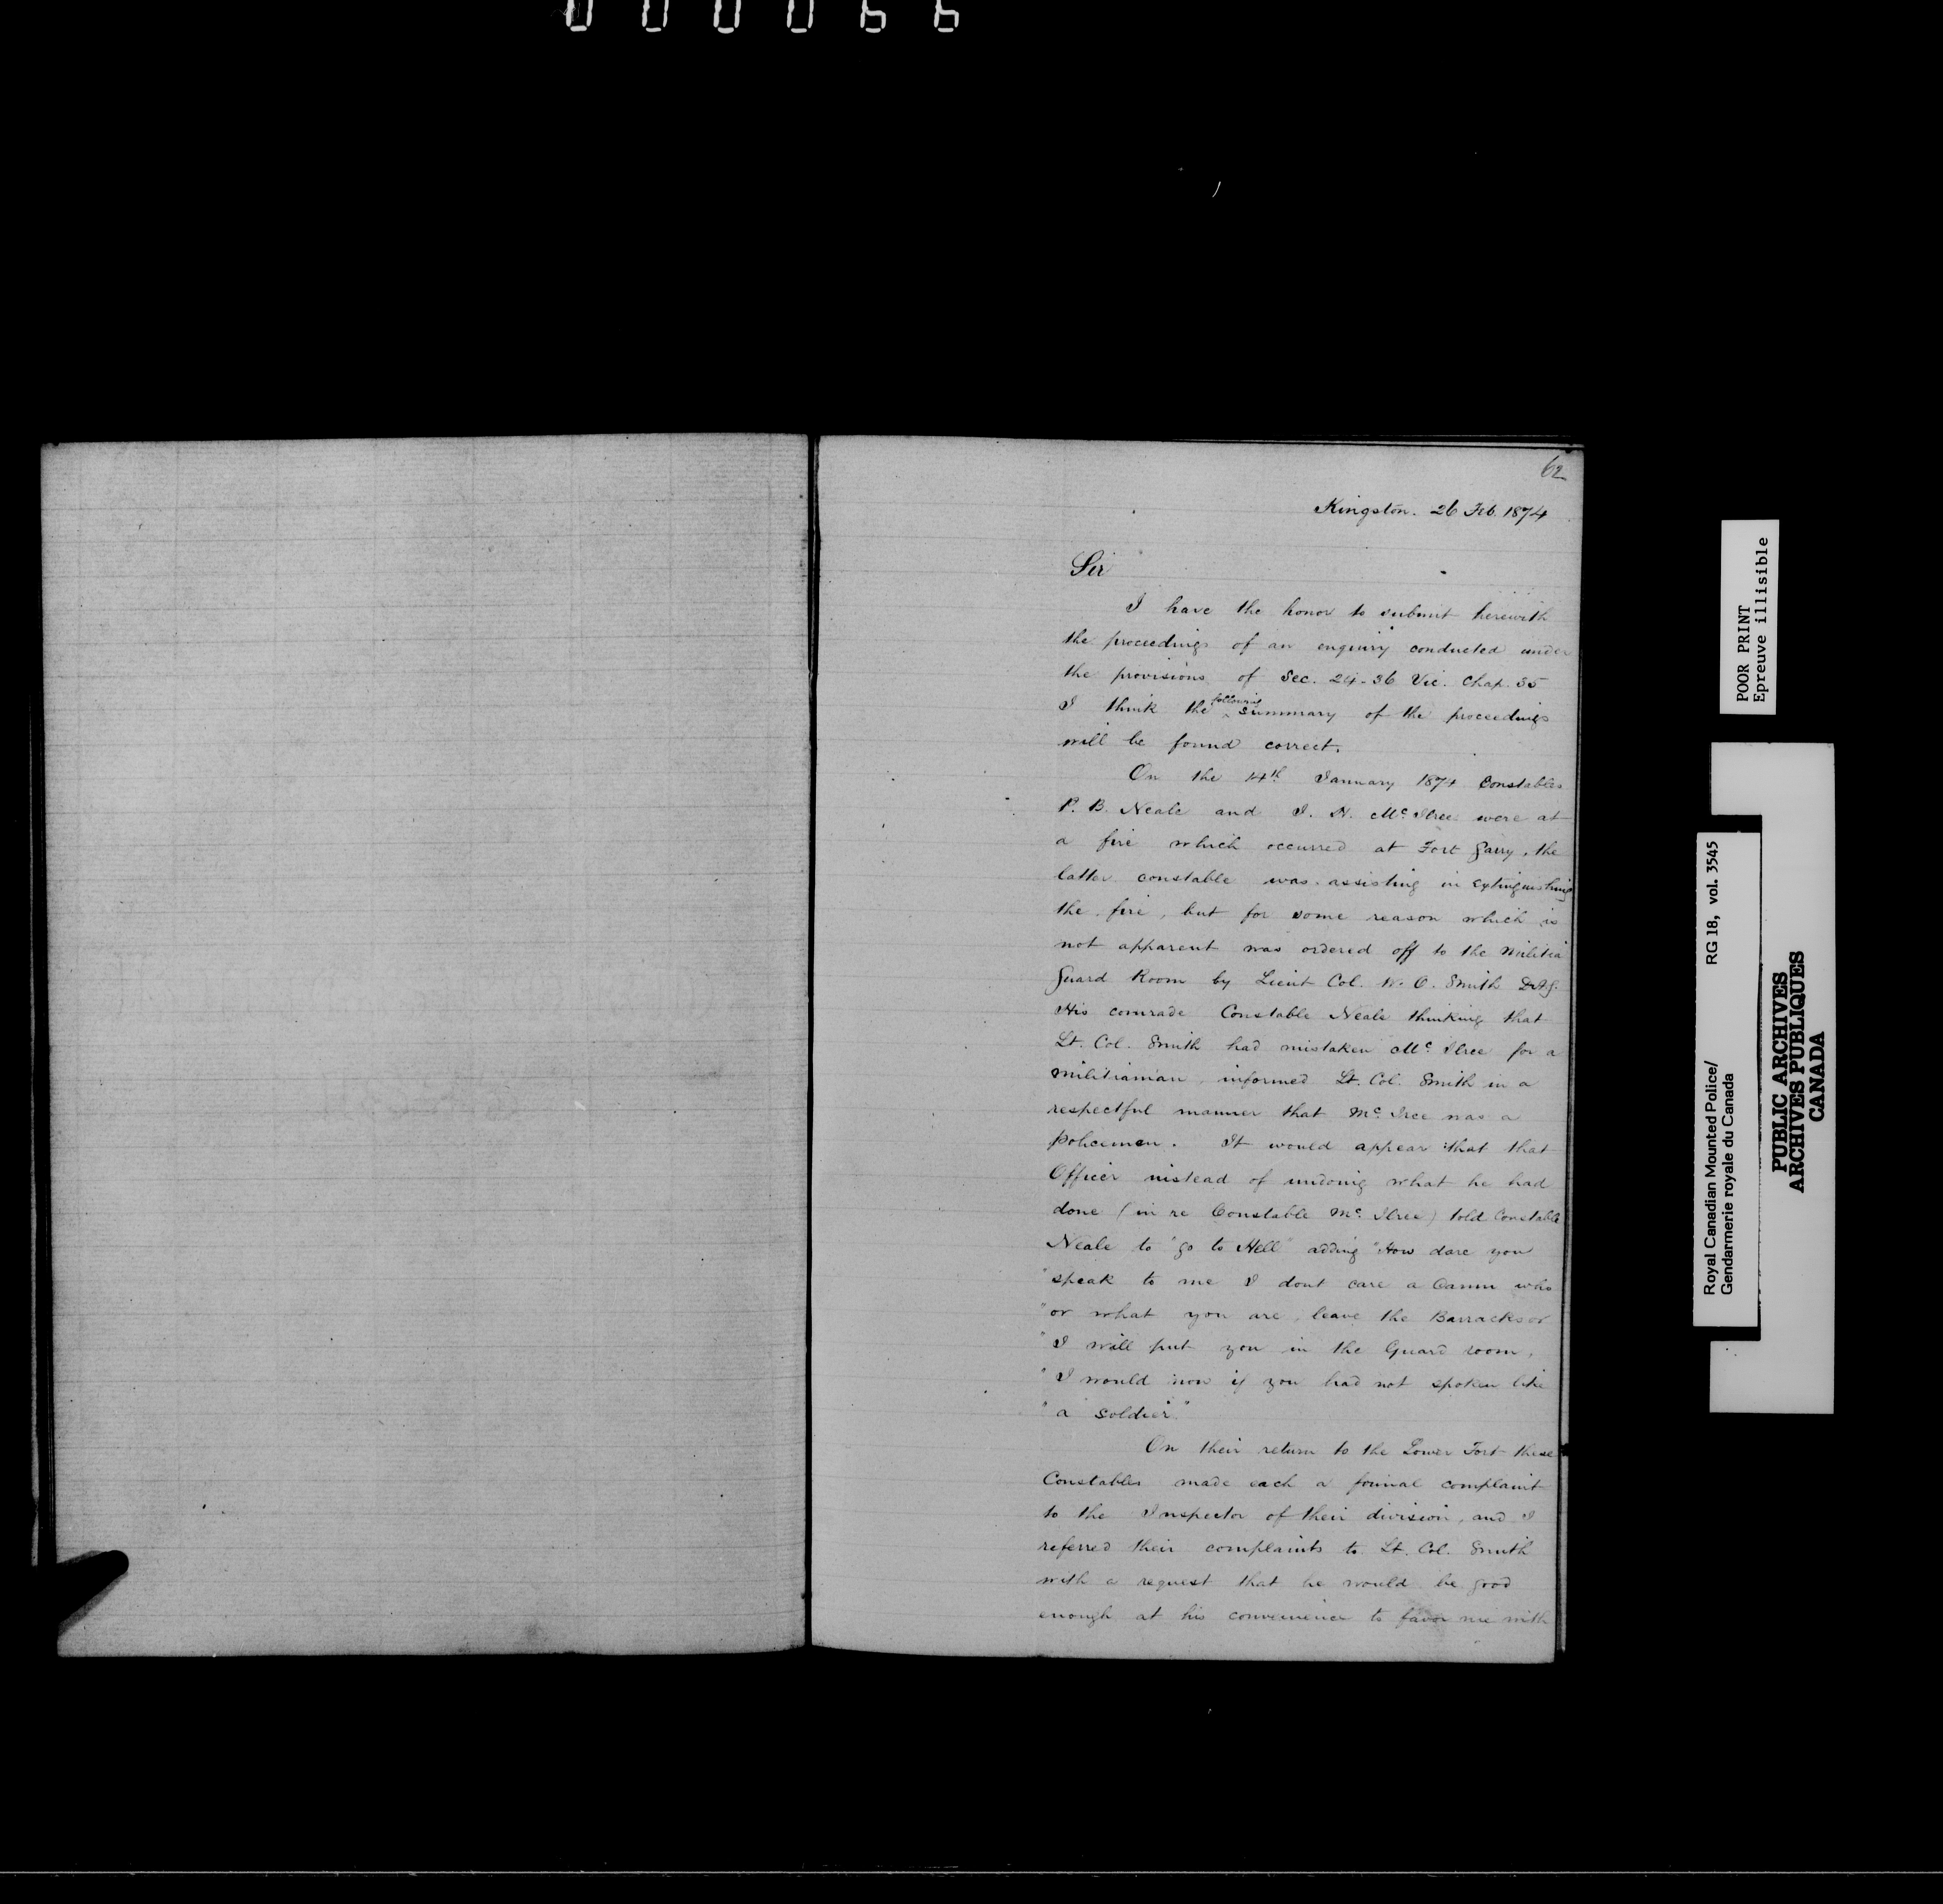 000066
62
Kingston. 26 Feb. 1874
Sir
I have the honor to submit herewith
the proceedings of an enquiry conducted under
the provisions of Sec. 24-36 Vic. Chap. 35
I think the following summary of the proceedings
will be found correct.
On the 14th January 1874 Constables
P. B. Neale and J. H. Mc Illree were at
a fire which occurred at Fort Garry, the
latter constable was assisting in extinguishing
the fire, but for some reason which is
not apparent was ordered off to the Militia
Guard Room by Lieut Col. W. O. Smith DAG.
His comrade Constable Neale thinking that
Lt. Col. Smith had mistaken Mc Ilree for a
militiaman, informed Lt. Col. Smith in a
respectful manner that Mc Iree was a
policeman. It would appear that that
Officer instead of undoing what he had
done (in re Constable Mc Ilree) told Constable
Neale to "go to Hell" adding "How dare you
"speak to me I dont care a Damn who
"or what you are, leave the Barracks or
"I will put you in the Guard room,
"I would now if you had not spoken like
"a soldier"
On their return to the Lower Fort these
Constables made each a formal complaint
to the Inspector of their division, and I
referred their complaints to Lt. Col. Smith
with a request that he would be good
enough at his convenience to favor me with
POOR PRINT
Epreuve illisible
Royal Canadian Mounted Police/ RG 18, vol. 3545
Gendarmerie royale du Canada
PUBLIC ARCHIVES
ARCHIVES PUBLIQUES
CANADA